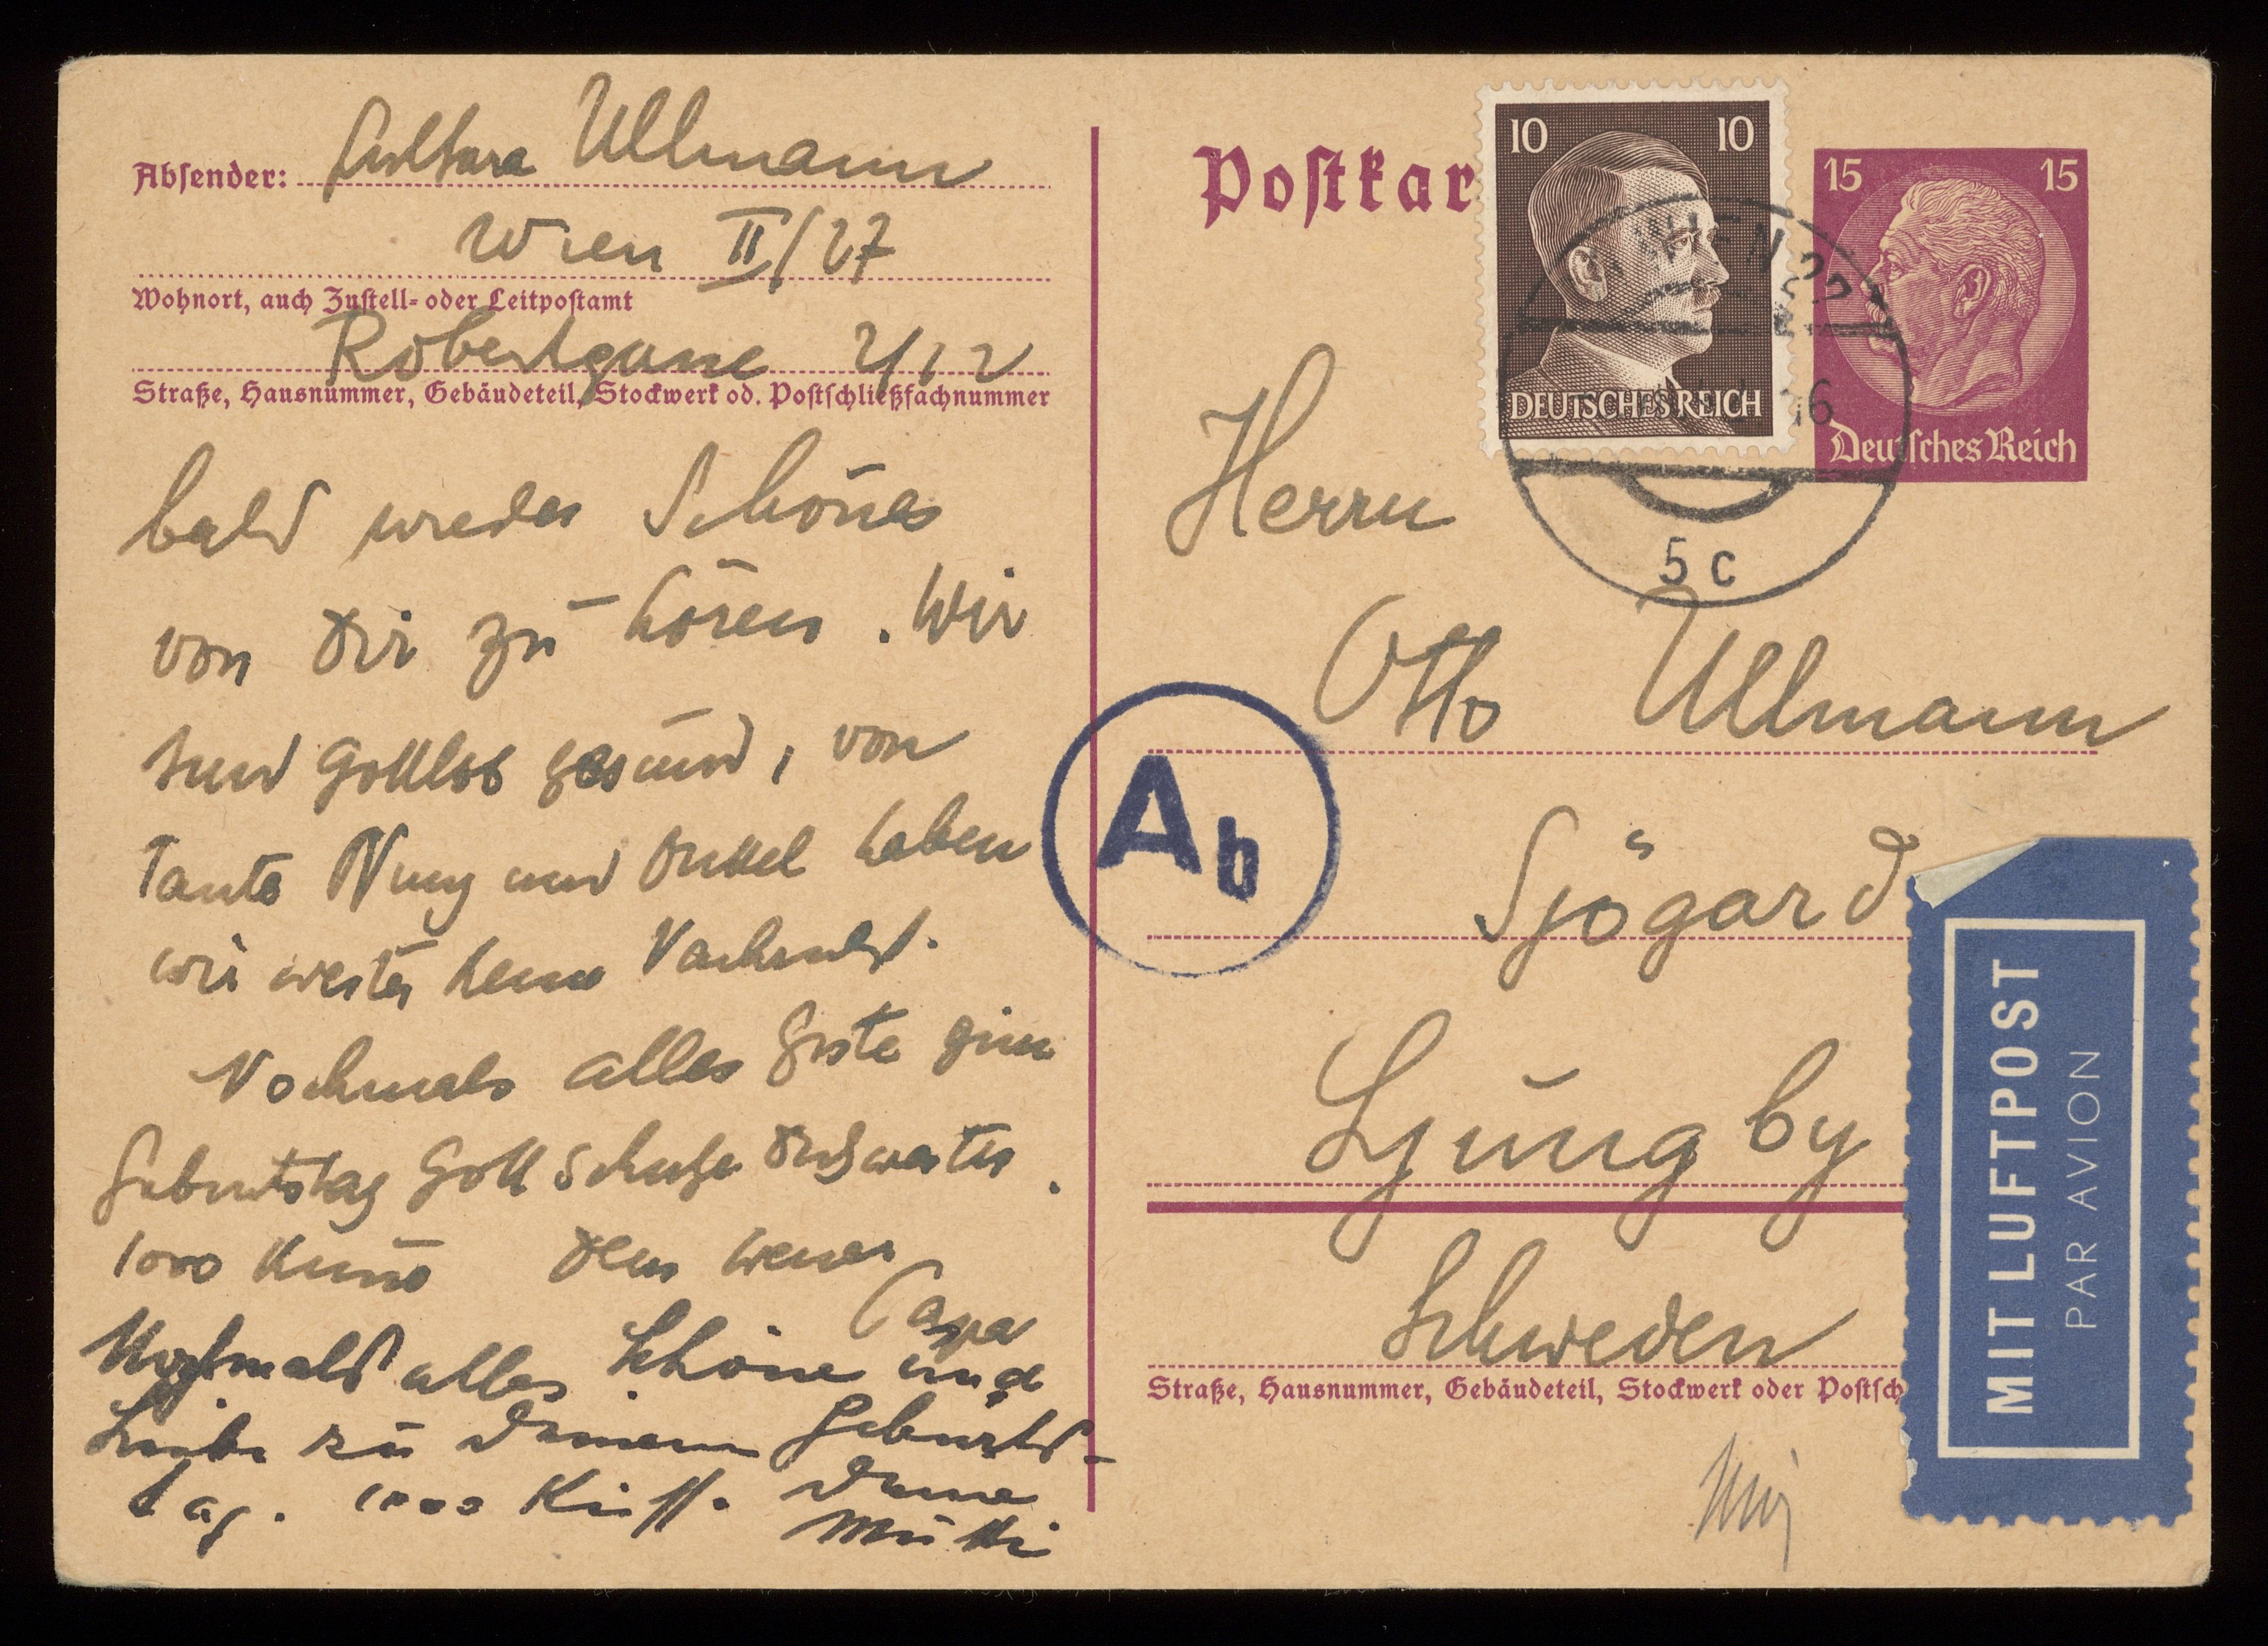 Absender: Ullmann
Wien II/27
Wohnort, auch Zustell- oder Leitpostamt
Robertgasse 2/12
Straße, Hausnummer, Gebäudeteil, Stockwerk od. Postschließfachnummer
bald wieder Schönes
von Dir zu hören. Wir
sind Gottlob gesund, von
Tante Nuny und Onkel haben
wir weiter keine Nachricht.
Nochmals alles Gute zum
Geburtstag Gott schütze Dich weiter.
1000 Küsse Dein
Papa
Nochmals alles Schöne und
Liebe zu Deinem Geburts-
tag. 1000 Küsse Deine
Mutti
Postkar
10 10
DEUTSCHES REICH
15 15
Deutsches Reich
WIEN 27
16
5c
Herrn
Otto Ullmann
Ab
Sjögard
Ljungby
Schweden
Straße, Hausnummer, Gebäudeteil, Stockwerk oder Postsch
MIT LUFTPOST
PAR AVION